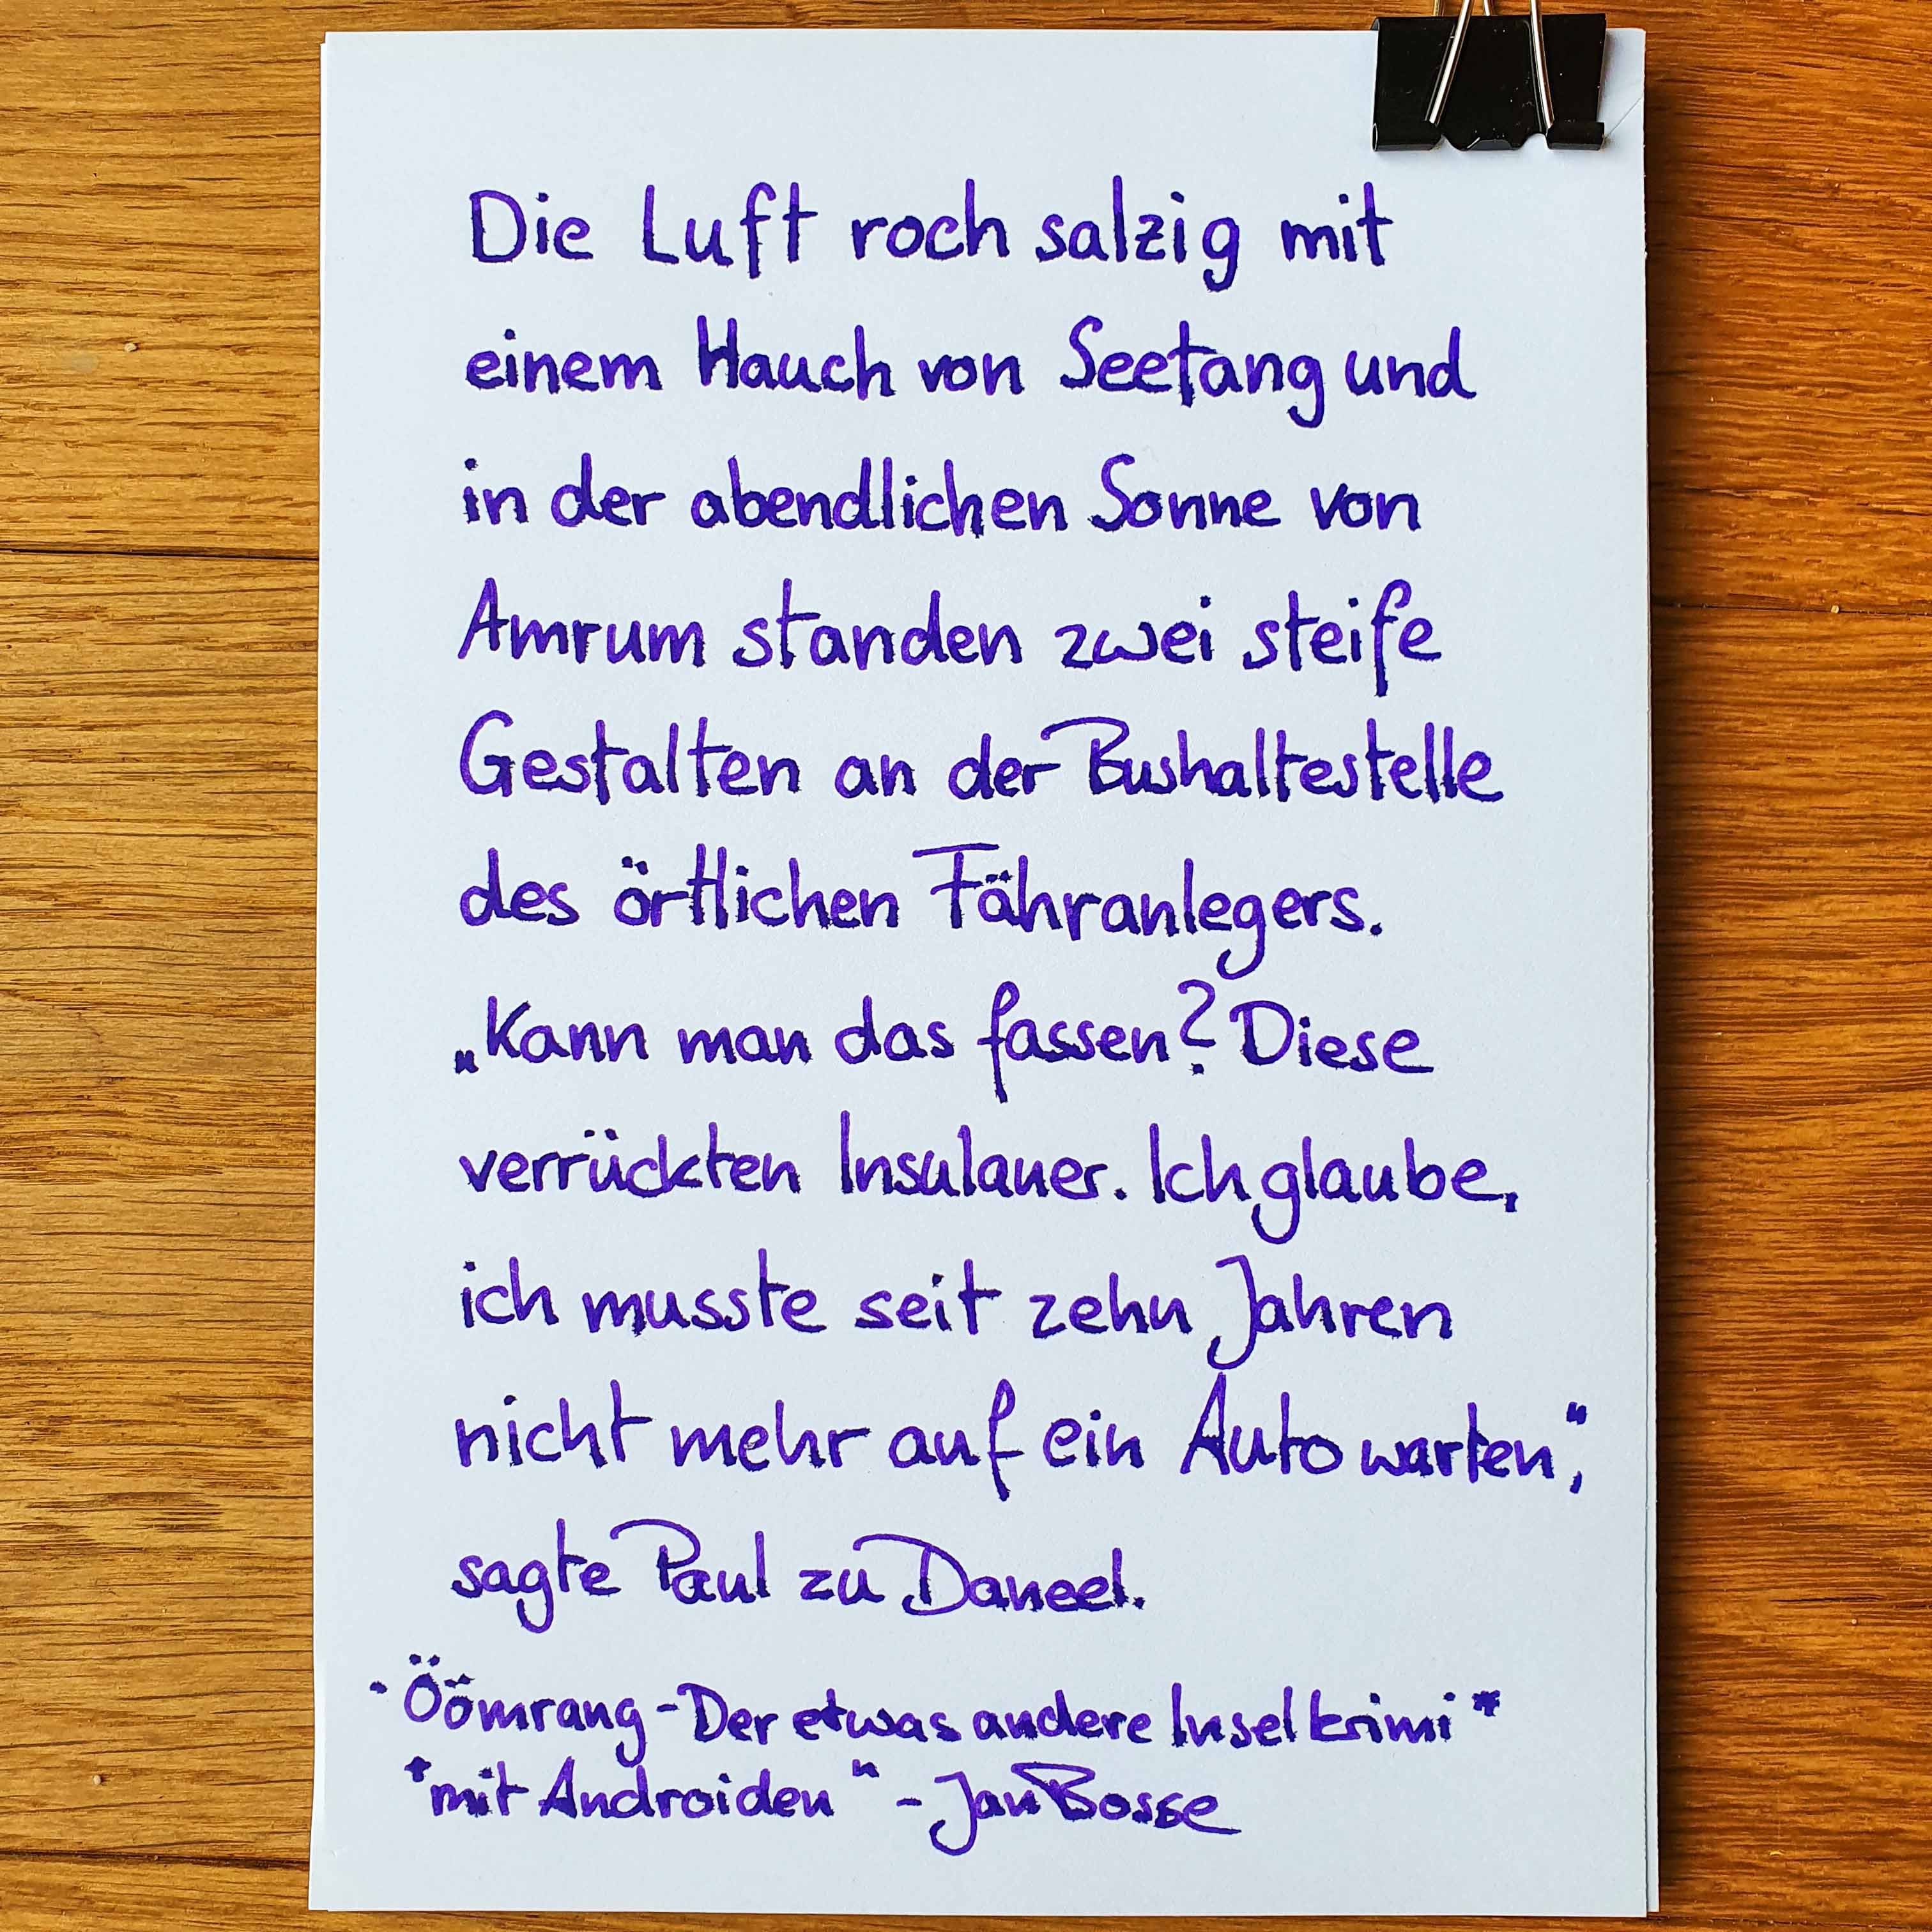 Die Luft roch salzig mit
einem Hauch von Seetang und
in der abendlichen Sonne von
Amrum standen zwei steife
Gestalten an der Bushaltestelle
des örtlichen Fähranlegers.
„Kann man das fassen? Diese
verrückten Insulaner. Ich glaube,
ich musste seit zehn Jahren
nicht mehr auf ein Auto warten“,
sagte Paul zu Daneel.
"Öömrang - Der etwas andere Inselkrimi*
*mit Androiden" - Jan Bosse